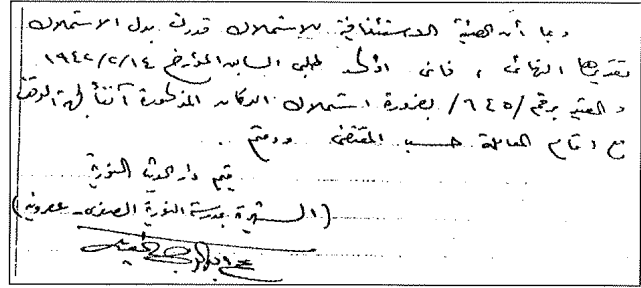 وبما أن الهيئة الاستئنافية للاستملاك قدرت بدل الاستملاك
تقديرها النهائي ، فاني اؤكد طلبي السابق المؤرخ ١٩٤٢/٢/١٤
و المقيد برقم /٦٤٥/ بضرورة استملاك الدكان المذكورة آنفاً لجهة الوقف
مع اتمام المعاملة حسب المقتضى ودمتم .
قيم دار الحديث النورية
(الشهيرة بمدرسة النورية الصغرى - عصرونية)